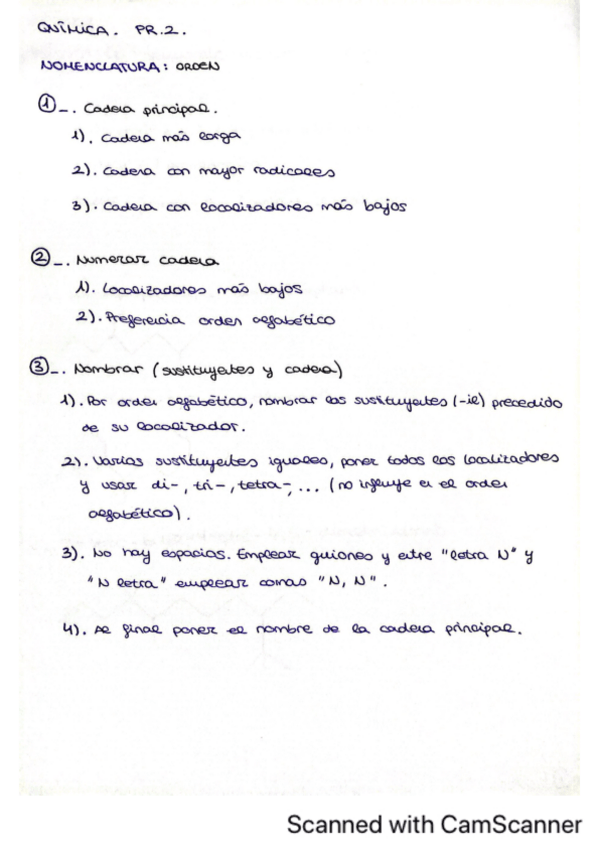 QUÍMICA. PR.2.
NOMENCLATURA: ORDEN
①-. Cadena principal.
1). Cadena más larga
2). Cadena con mayor radicales
3). Cadena con localizadores más bajos
②-. Numerar cadena
1). Localizadores más bajos
2). Preferencia orden alfabético
③-. Nombrar (sustituyetes y cadena)
1). Por orden alfabético, nombrar los sustituyentes (-il) precedido
de su localizador.
2). Varios sustituyentes iguales, poner todos los localizadores
y usar di-, tri-, tetra-, ... (no influye en el orden
alfabético).
3). No hay espacios. Emplear guiones y entre "letra N" y
"N letra" emplear comas "N, N".
4). Al final poner el nombre de la cadena principal.
Scanned with CamScanner